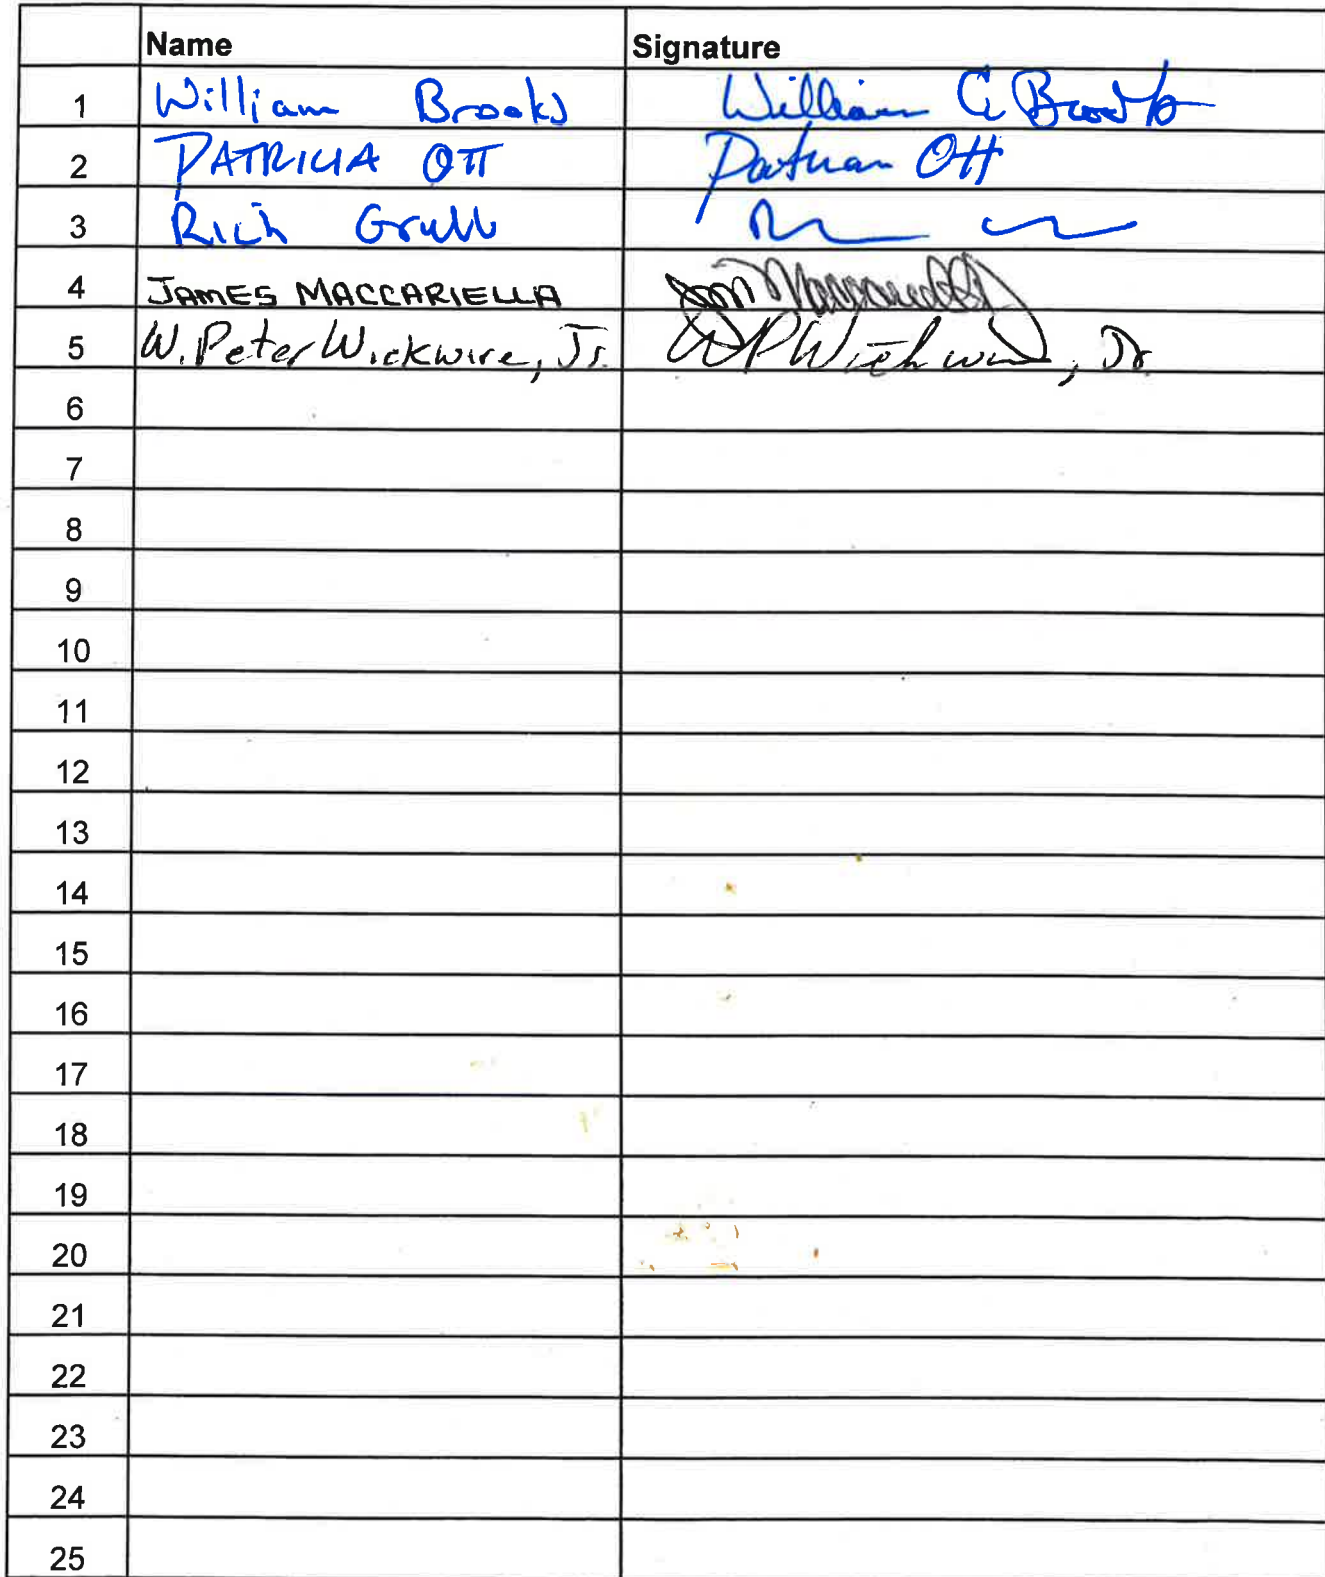 Name Signature
1 William Brooks William C. Brooks
2 PATRICIA OTT Patricia Ott
3 Rich Grubb
4 JAMES MACCARIELLA
5 W. Peter Wickwire, Jr. WP Wickwire, Jr.
6
7
8
9
10
11
12
13
14
15
16
17
18
19
20
21
22
23
24
25